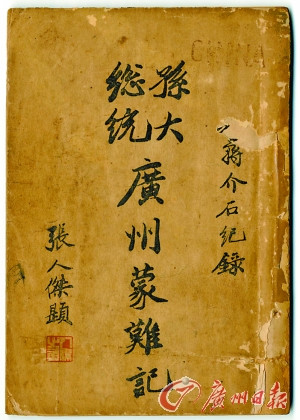 CHINA
蔣介石紀錄
孫大
総統
廣州蒙難記
張人傑題
廣州日报